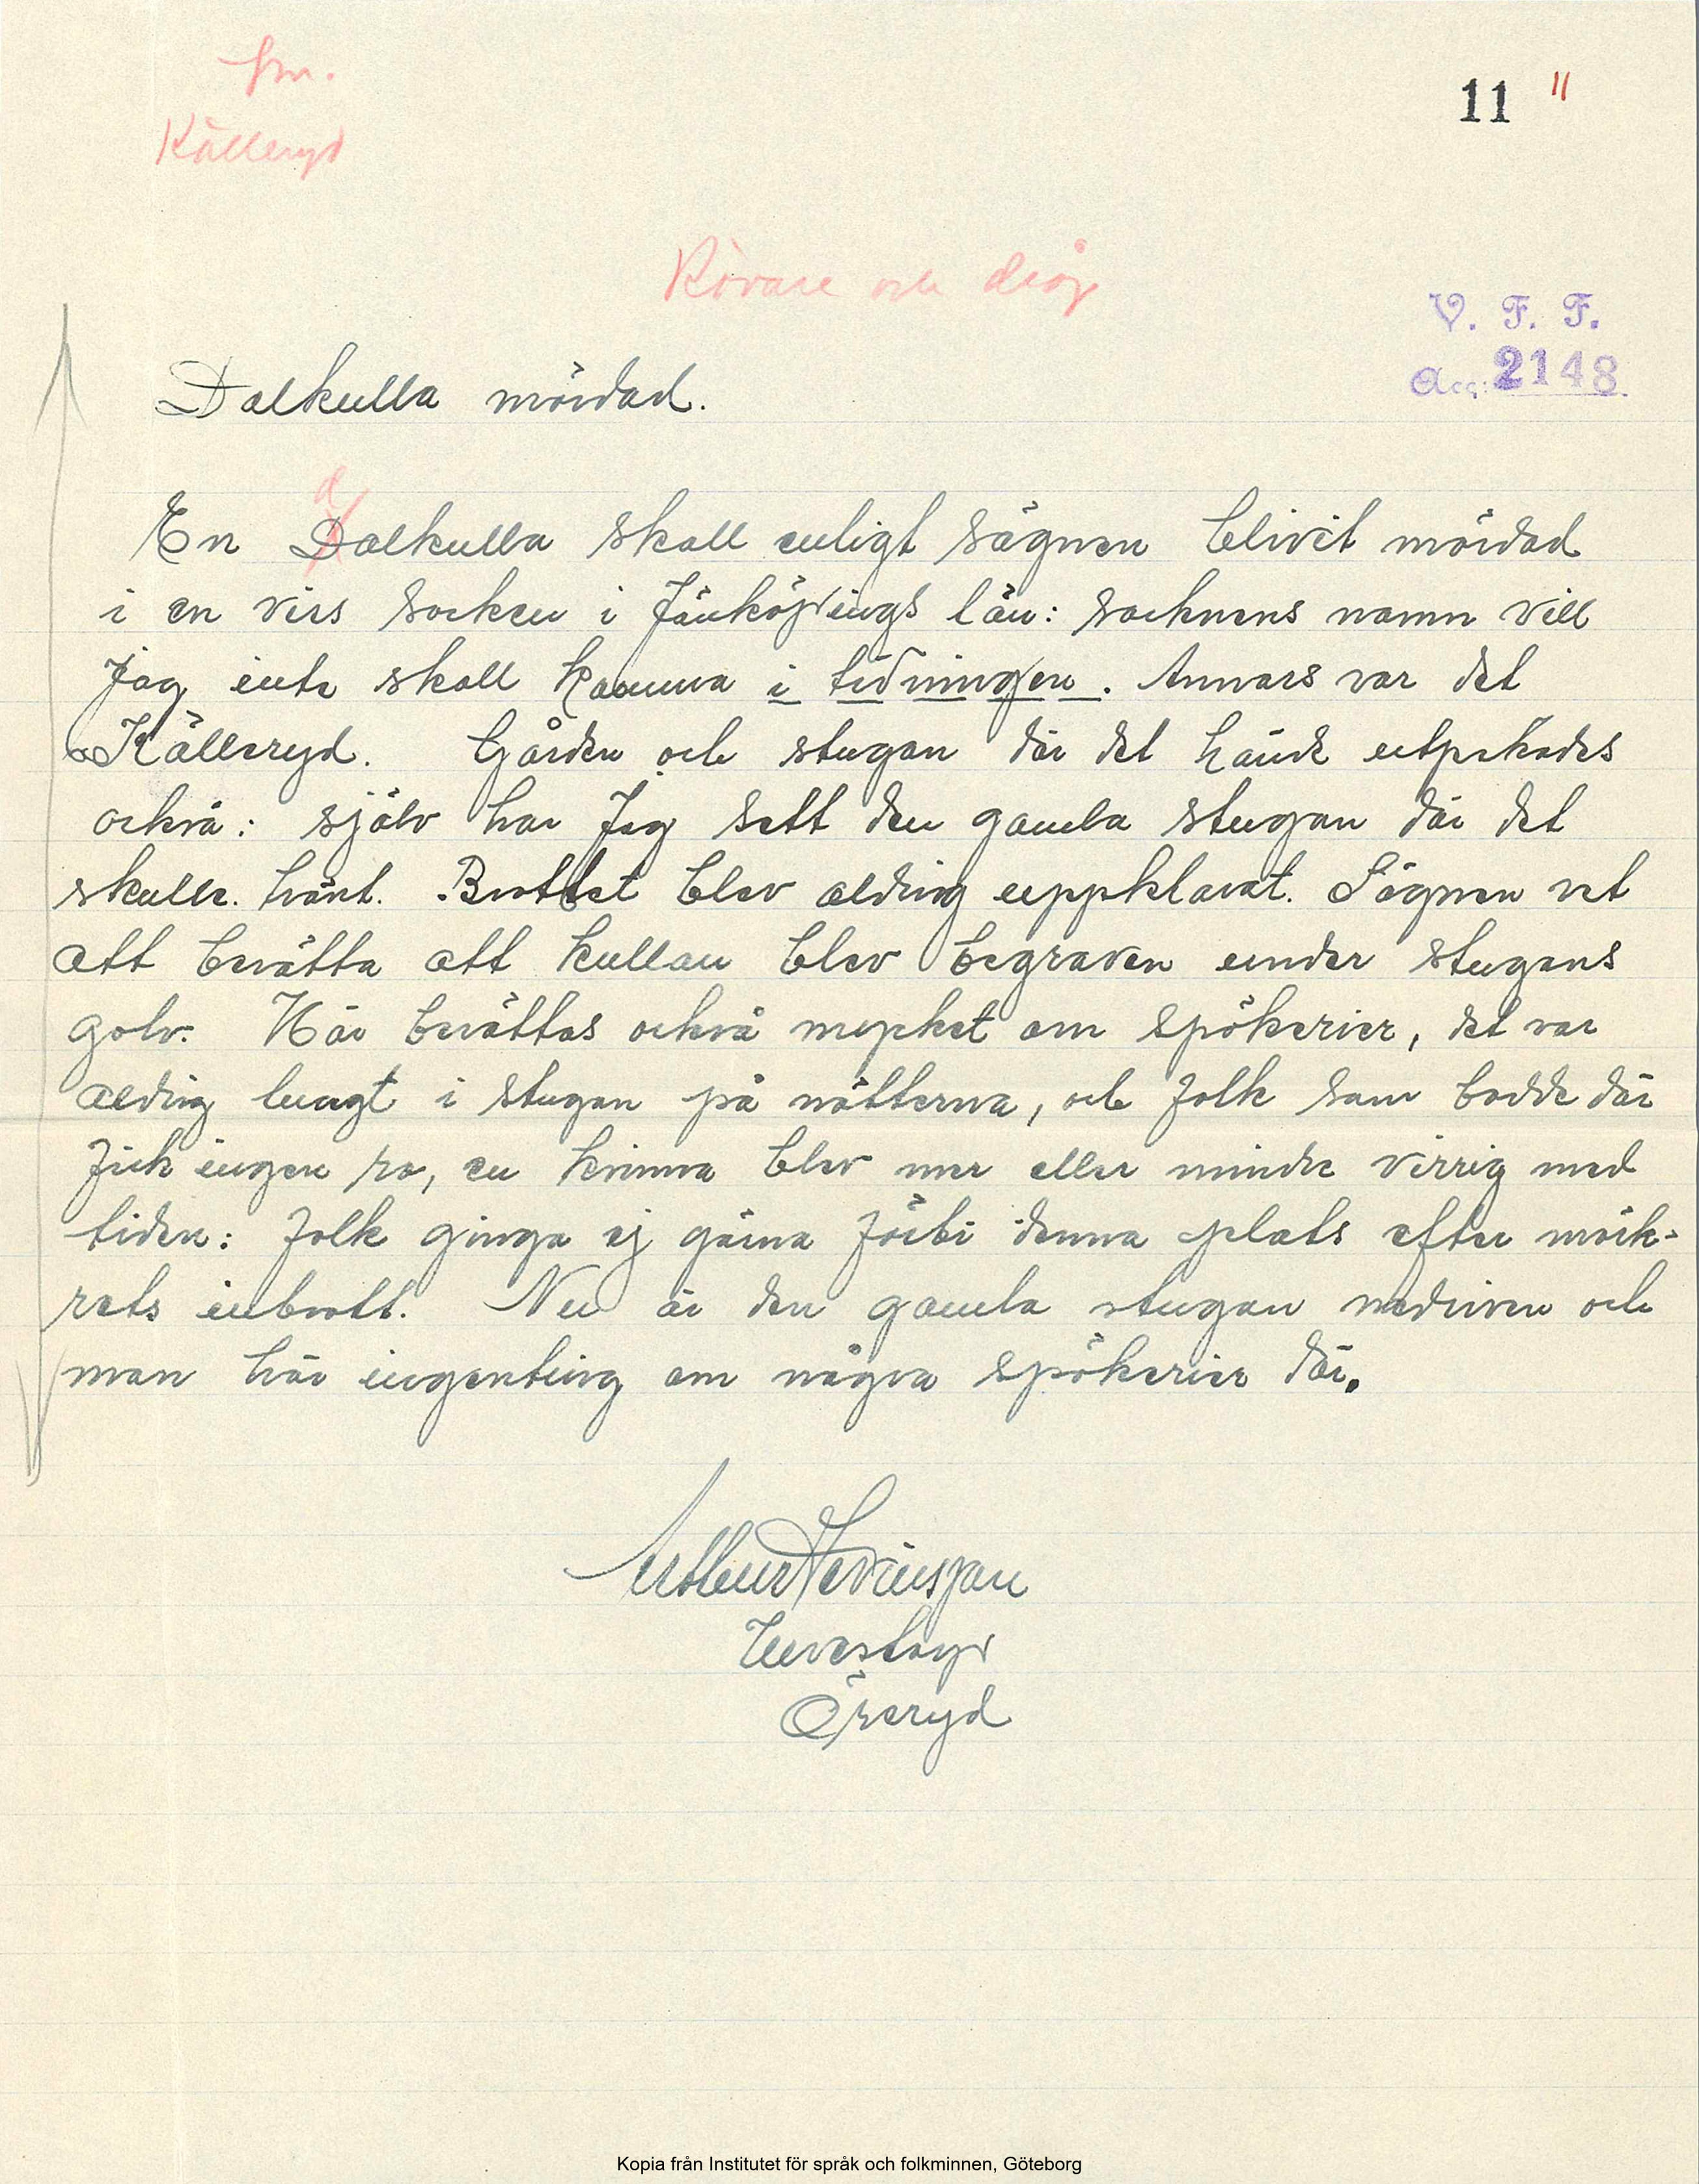 fm.
Källeryd
11 11
Rövare och dråp
V. F. F.
Acc: 2148.
Dalkulla mördad.
d
En Dalkulla skall enligt sägnen blivit mördad
i en viss socken i Jönköpings län: socknens namn vill
Jag inte skall komma i tidningen. Annars var det
Källeryd. Gården och stugan där det hände utpekades
också: själv har Jag sett den gamla stugan där det
skulle hänt. Brottet blev aldrig uppklarat. Sägnen vet
att berätta att kullan blev begraven under stugans
golv. Här berättas också mycket om spökerier, det var
aldrig lungt i stugan på nätterna, och folk som bodde där
fick ingen ro, en kvinna blev mer eller mindre virrig med
tiden: folk gingo ej gärna förbi denna plats efter mörk-
rets inbrott. Nu är den gamla stugan nedriven och
man hör ingenting om några spökerier där.
Öreryd
Kopia från Institutet för språk och folkminnen, Göteborg